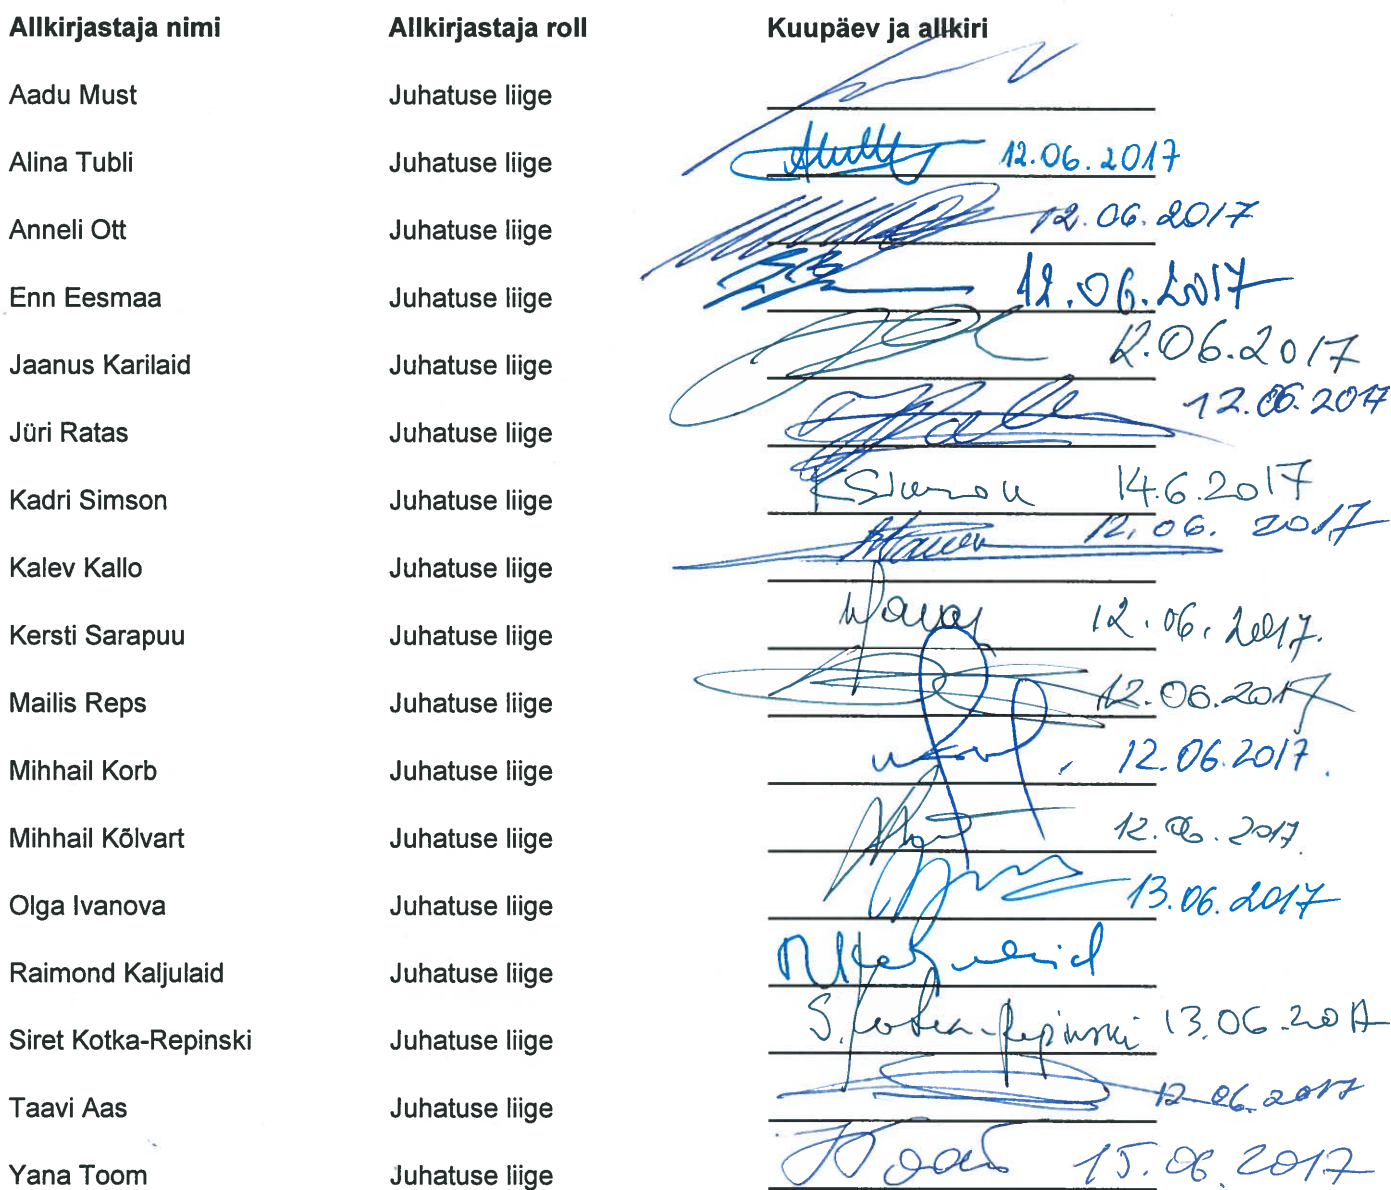 Allkirjastaja nimi Allkirjastaja roll Kuupäev ja allkiri
Aadu Must Juhatuse liige
Alina Tubli Juhatuse liige 12.06.2017
Anneli Ott Juhatuse liige 12.06.2017
Enn Eesmaa Juhatuse liige 12.06.2017
Jaanus Karilaid Juhatuse liige 12.06.2017
Jüri Ratas Juhatuse liige 12.06.2017
Kadri Simson Juhatuse liige KSimson 14.6.2017
Kalev Kallo Juhatuse liige 12.06.2017
Kersti Sarapuu Juhatuse liige 12.06.2017.
Mailis Reps Juhatuse liige 12.06.2017
Mihhail Korb Juhatuse liige 12.06.2017.
Mihhail Kõlvart Juhatuse liige 12.06.2017.
Olga Ivanova Juhatuse liige 13.06.2017
Raimond Kaljulaid Juhatuse liige
Siret Kotka-Repinski Juhatuse liige S. Kotka-Repinski 13.06.2017
Taavi Aas Juhatuse liige 12.06.2017
Yana Toom Juhatuse liige 15.06.2017